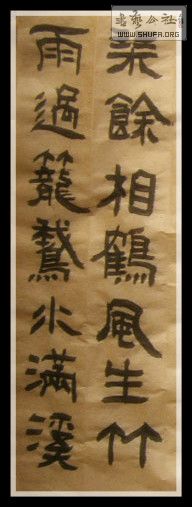 茶餘相鶴風生竹
雨過籠鵝水滿溪
書藝公社
WWW.SHUFA.ORG